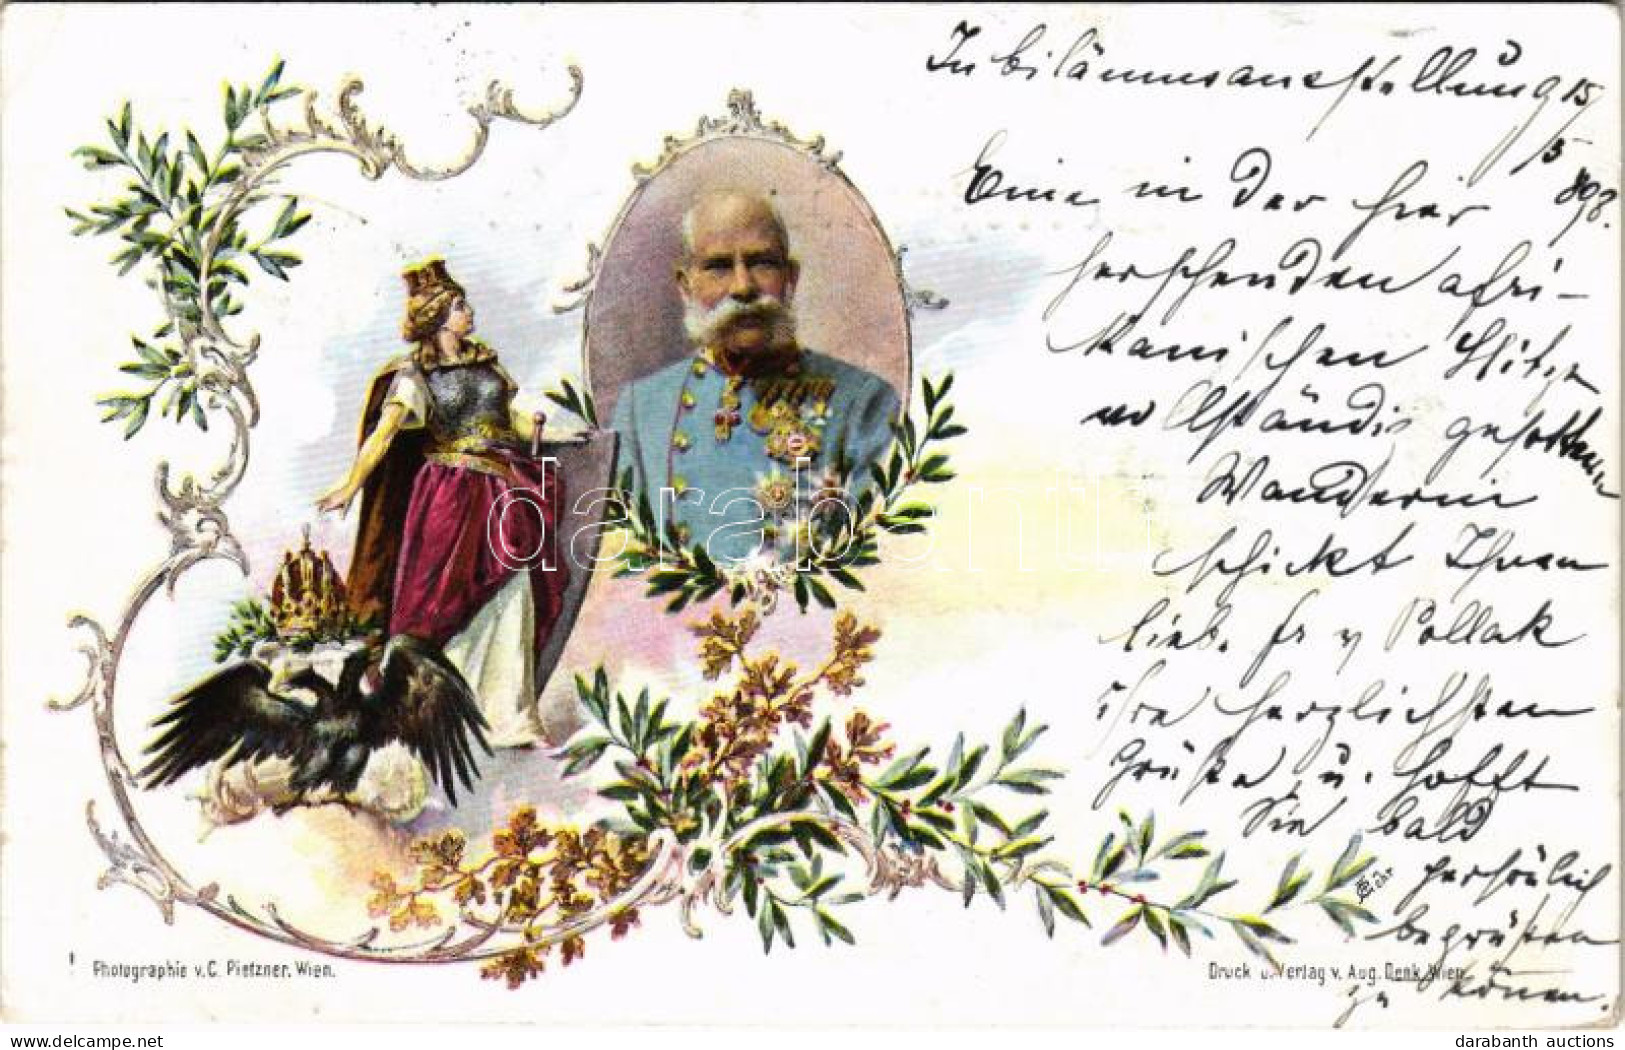 Jubiläumsausstellung 15/
5
898.
Eine in der hier
herschenden afri-
kanischen Hitze
vollständig gesottene
Wanderin
schickt Ihnen
lieb. Fr v Pollak
ihre herzlichsten
Grüße u. hofft
Sie bald
persönlich
begrüßen
zu können.
darabanth
Photographie v. C. Pietzner, Wien.
Druck u. Verlag v. Aug. Denk, Wien
www.delcampe.net
darabanth auctions